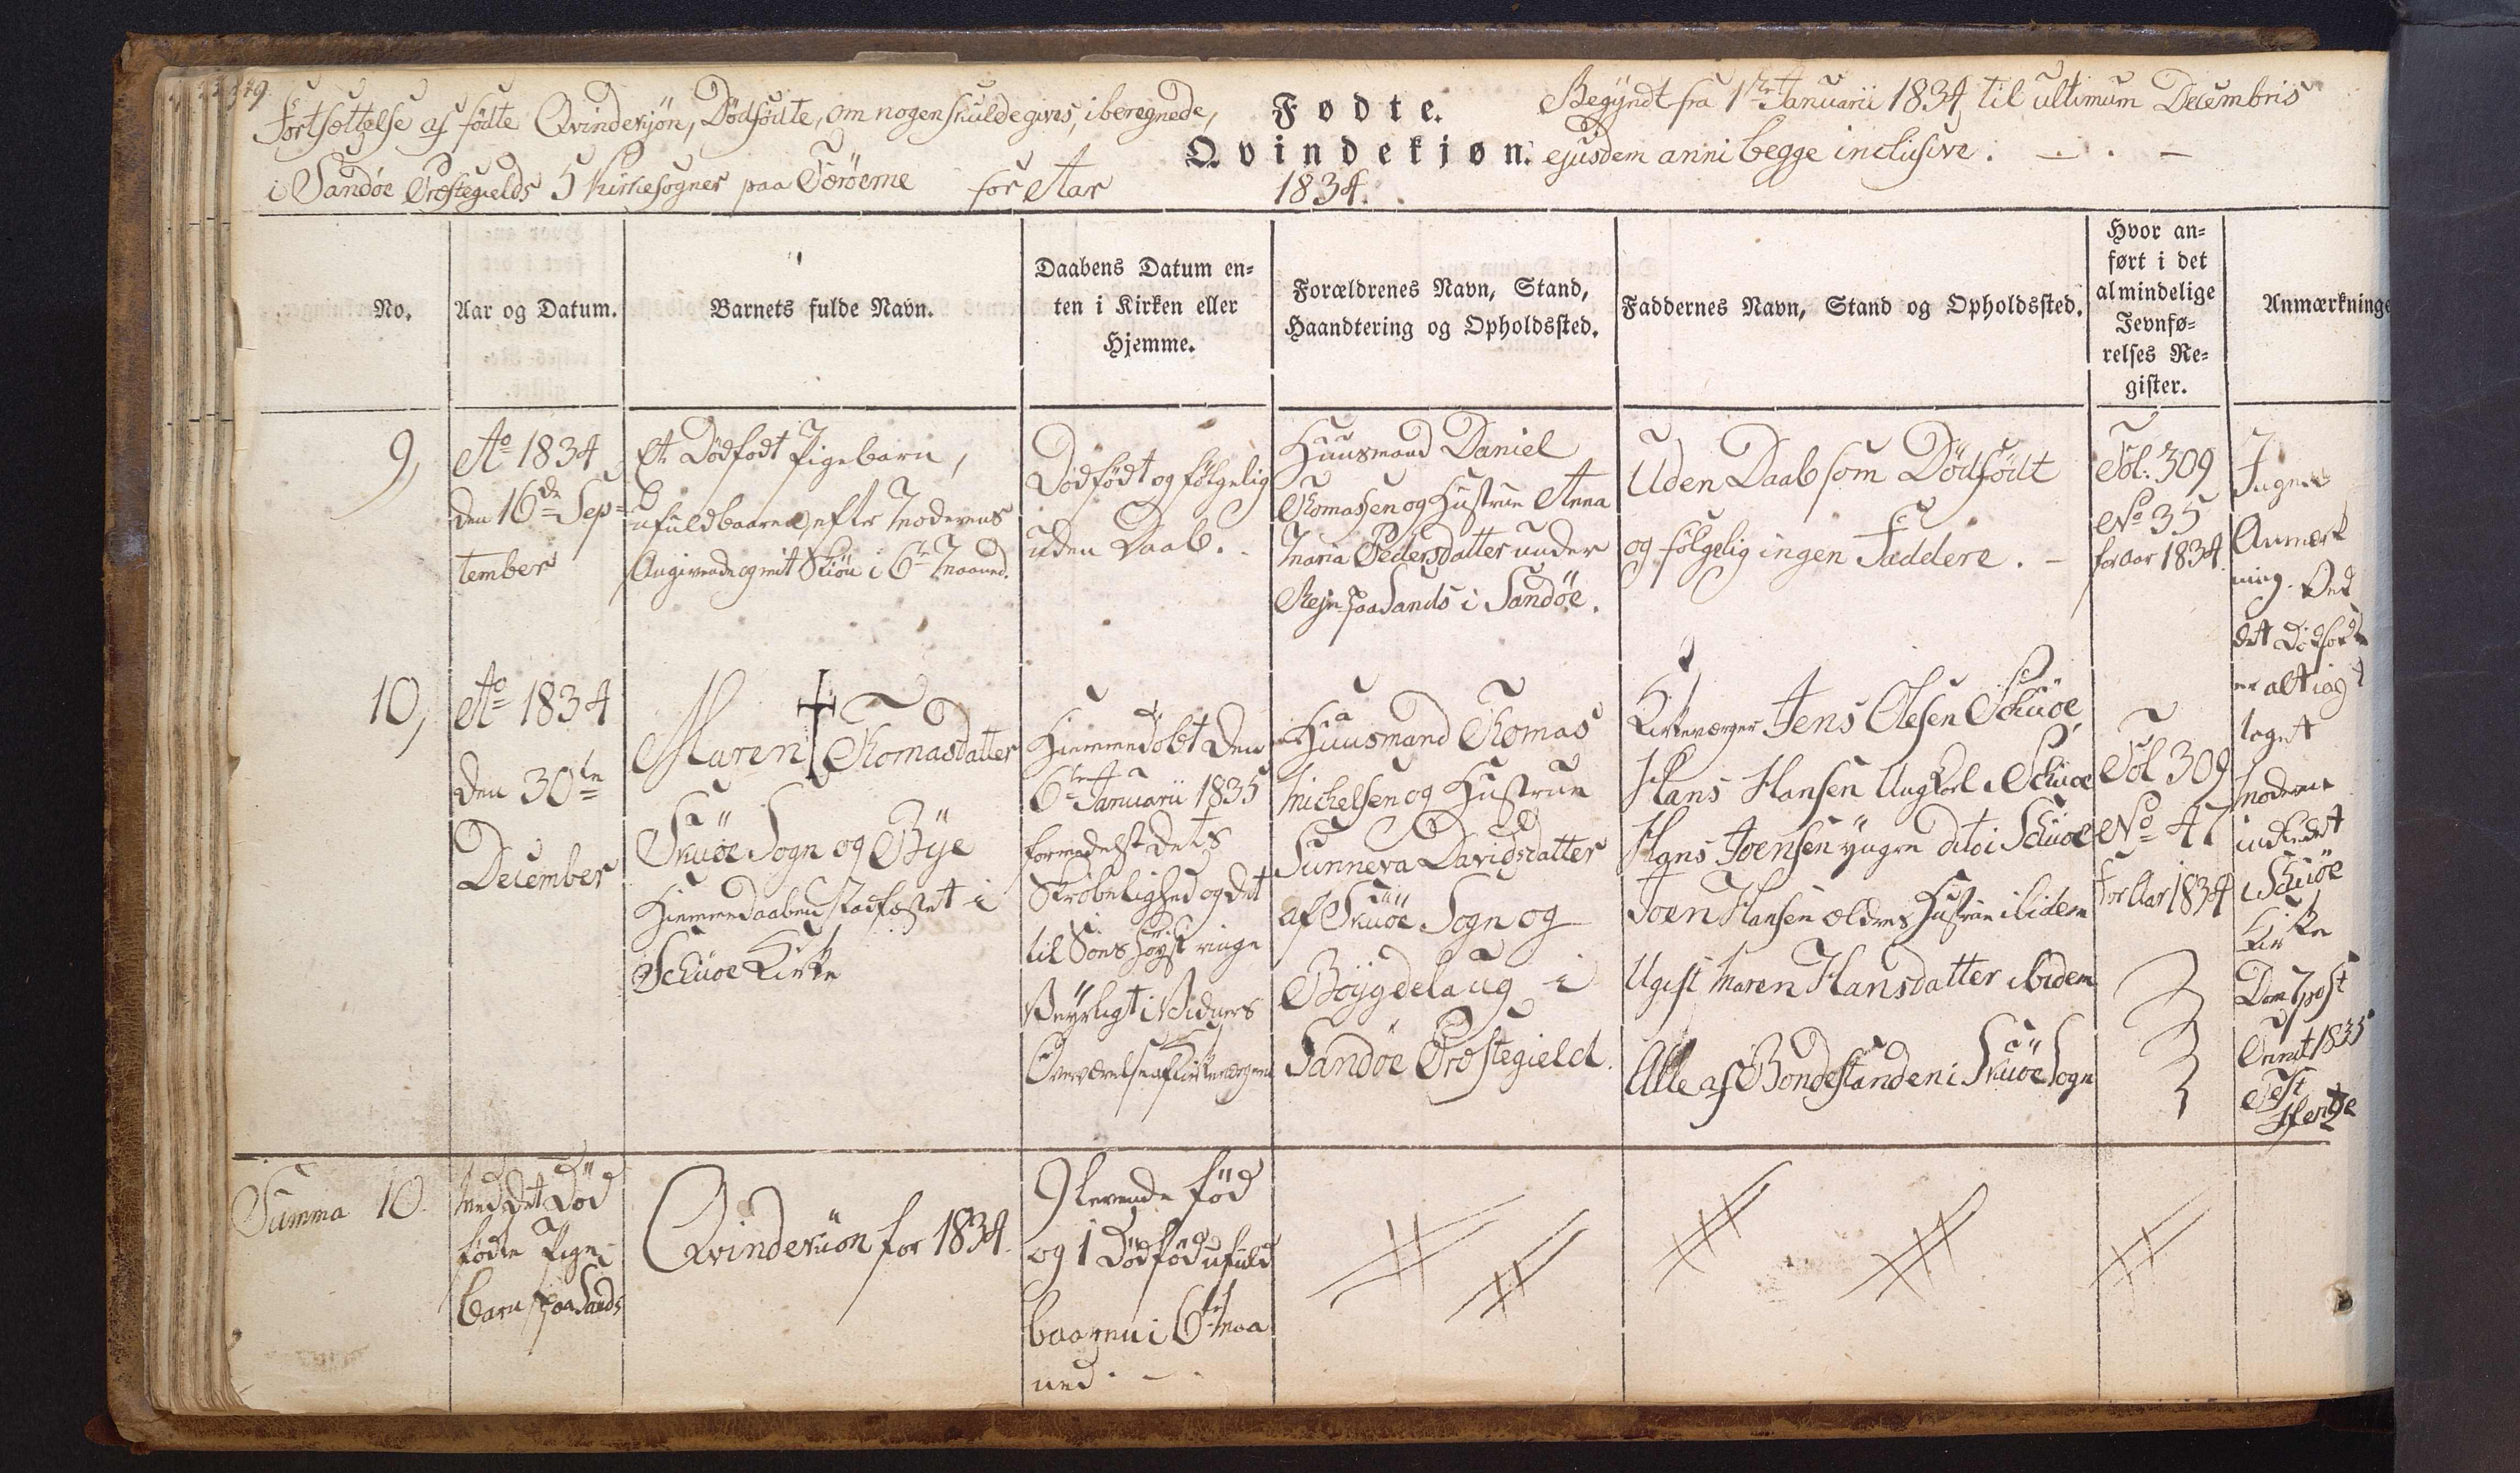 Fortsættelse af födte Qvindekjön, Dödfödte, om nogen skulde gives, iberegnede,
i Sandöe Præstegields 5 Kirkesogner paa Færöerne for Aar 1834.
Fødte.
Qvindekjøn.
Begÿndt fra 1ste Januarii 1834 til ultimum Decembris
ejusdem anni begge inclusive.
No.
Aar og Datum.
Barnets fulde Navn.
Daabens Datum en-
ten i Kirken eller
Hjemme.
Forældrenes Navn, Stand,
Haandtering og Opholdssted.
Faddernes Navn, Stand og Opholdssted.
Hvor an-
ført i det
almindelige
Jevnfø-
relses Re-
gister.
Anmærkninge
9,
Ao 1834
den 16de Sep-
tember
Et Dödfödt Pigebarn,
ufuldbaaren efter Moderens
Angivende og mit Skiön i 6te Maaned.
Dödfödt og fölgelig
uden Daab.
Huusmand Daniel
Thomassen og Hustrue Anna
Maria Pedersdatter under
Reÿn paa Sands i Sandöe.
Uden Daab som Dödfödt
og fölgelig ingen Faddere. -
Fol: 309
No 35
for Aar 1834.
Ingen
Anmærk
ning. Ved
det Dödfödte
er alt iagt
taget
10,
Ao 1834
den 30te
December
Maren Thomasdatter
Skuöe Sogn og Bÿe
Hiemmedaaben stadfæstet i
Schuöe Kirke
Hiemmedöbt den
6te Januarii 1835
formedelst dets
Skröbelighed og det
til Söes höÿst ringe
Veÿrligt i Vidners
Overværelse af Kirkeværgeren
Huusmand Thomas
Michelsen og Hustrue
Sunneva Davidsdatter
af Skuöe Sogn og
Böÿgdelaug i
Sandöe Præstegield.
Kirkeværger Jens Olesen Schuöe,
Hans Hansen Ungkarl i Schuoe
Hans Joensen ÿngre dito i Schuoe
Joen Hansen ældres Hustrue ibidem
Ugift Maren Hansdatter ibidem
Alle af Bondestanden i Skuöe Sogn
Fol 309
No 47
for Aar 1834
Moderen
indledt
i Schuöe
Kirke
Dom 7 post
Trinit 1835
Test
Hentze
Summa 10.
Med det Död
födte Pige-
barn paa Sands
Qvindekiön for 1834.
9 levende föd
og 1 Dödföd ufuld
baaren i 6te Maa
ned.